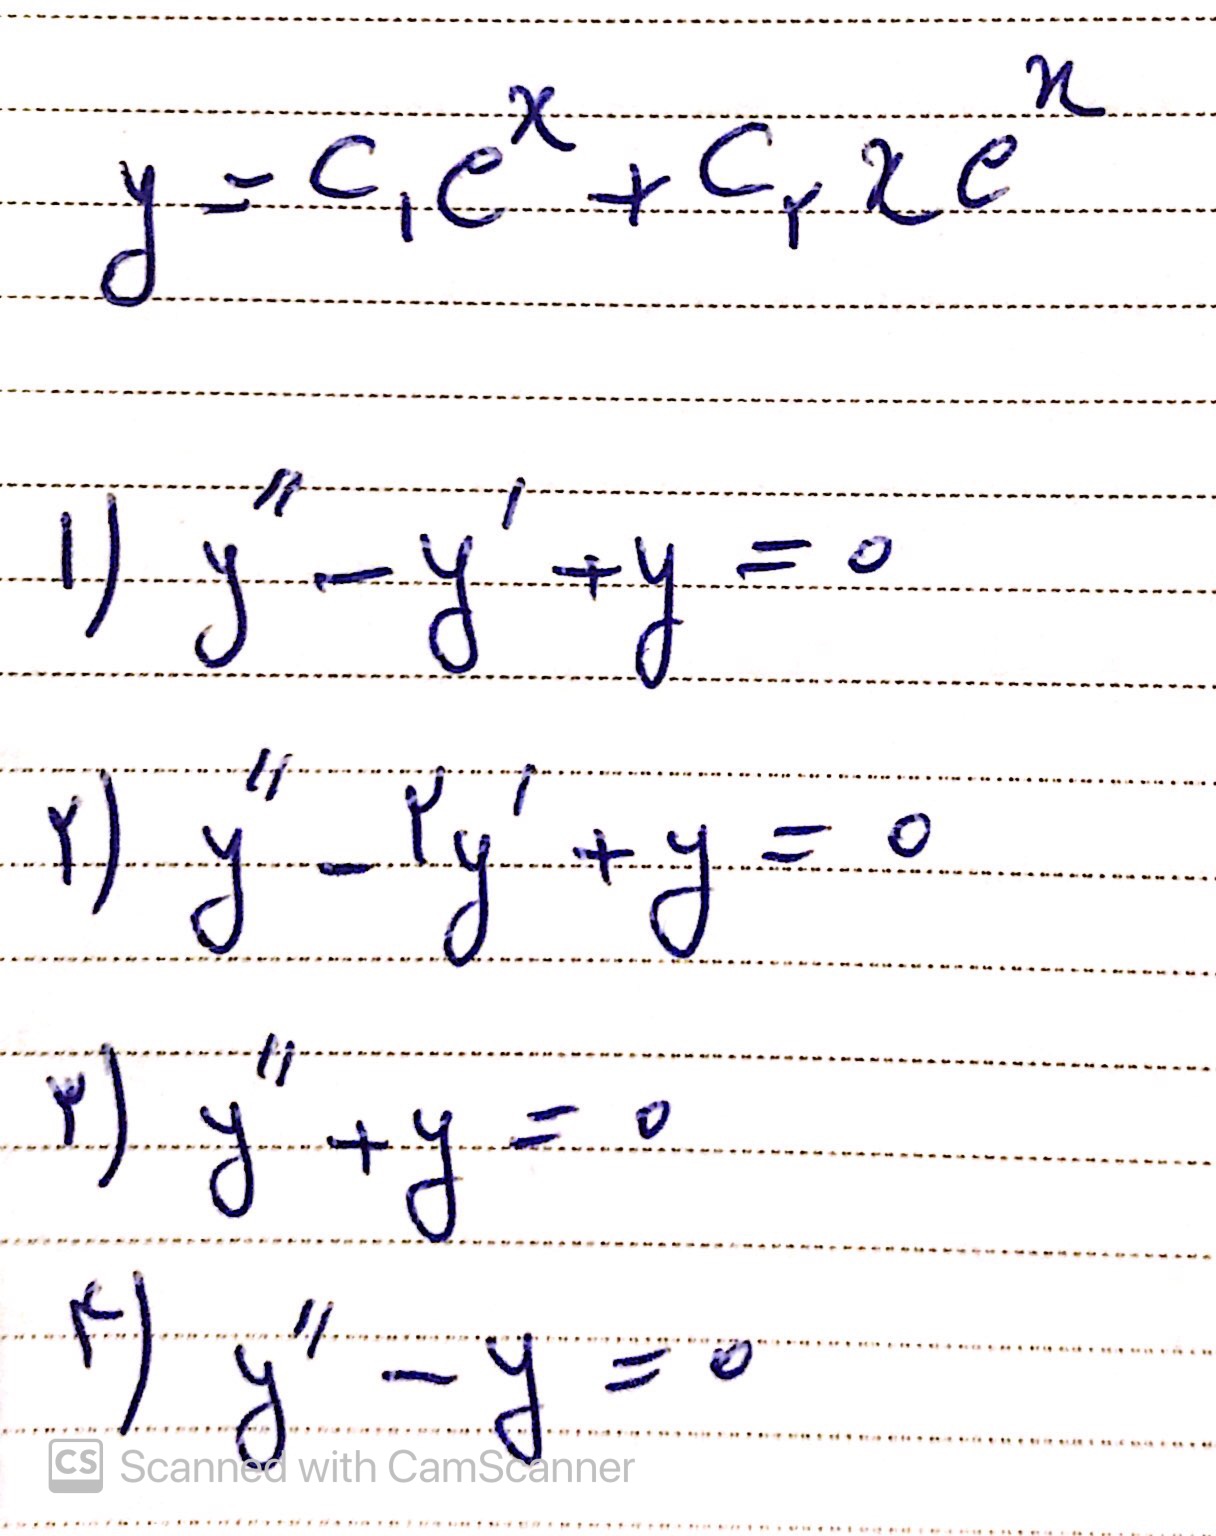 y = C₁e^x + C₂ x e^x
۱) y'' - y' + y = 0
۲) y'' - ۲y' + y = 0
۳) y'' + y = 0
۴) y'' - y = 0
CS Scanned with CamScanner